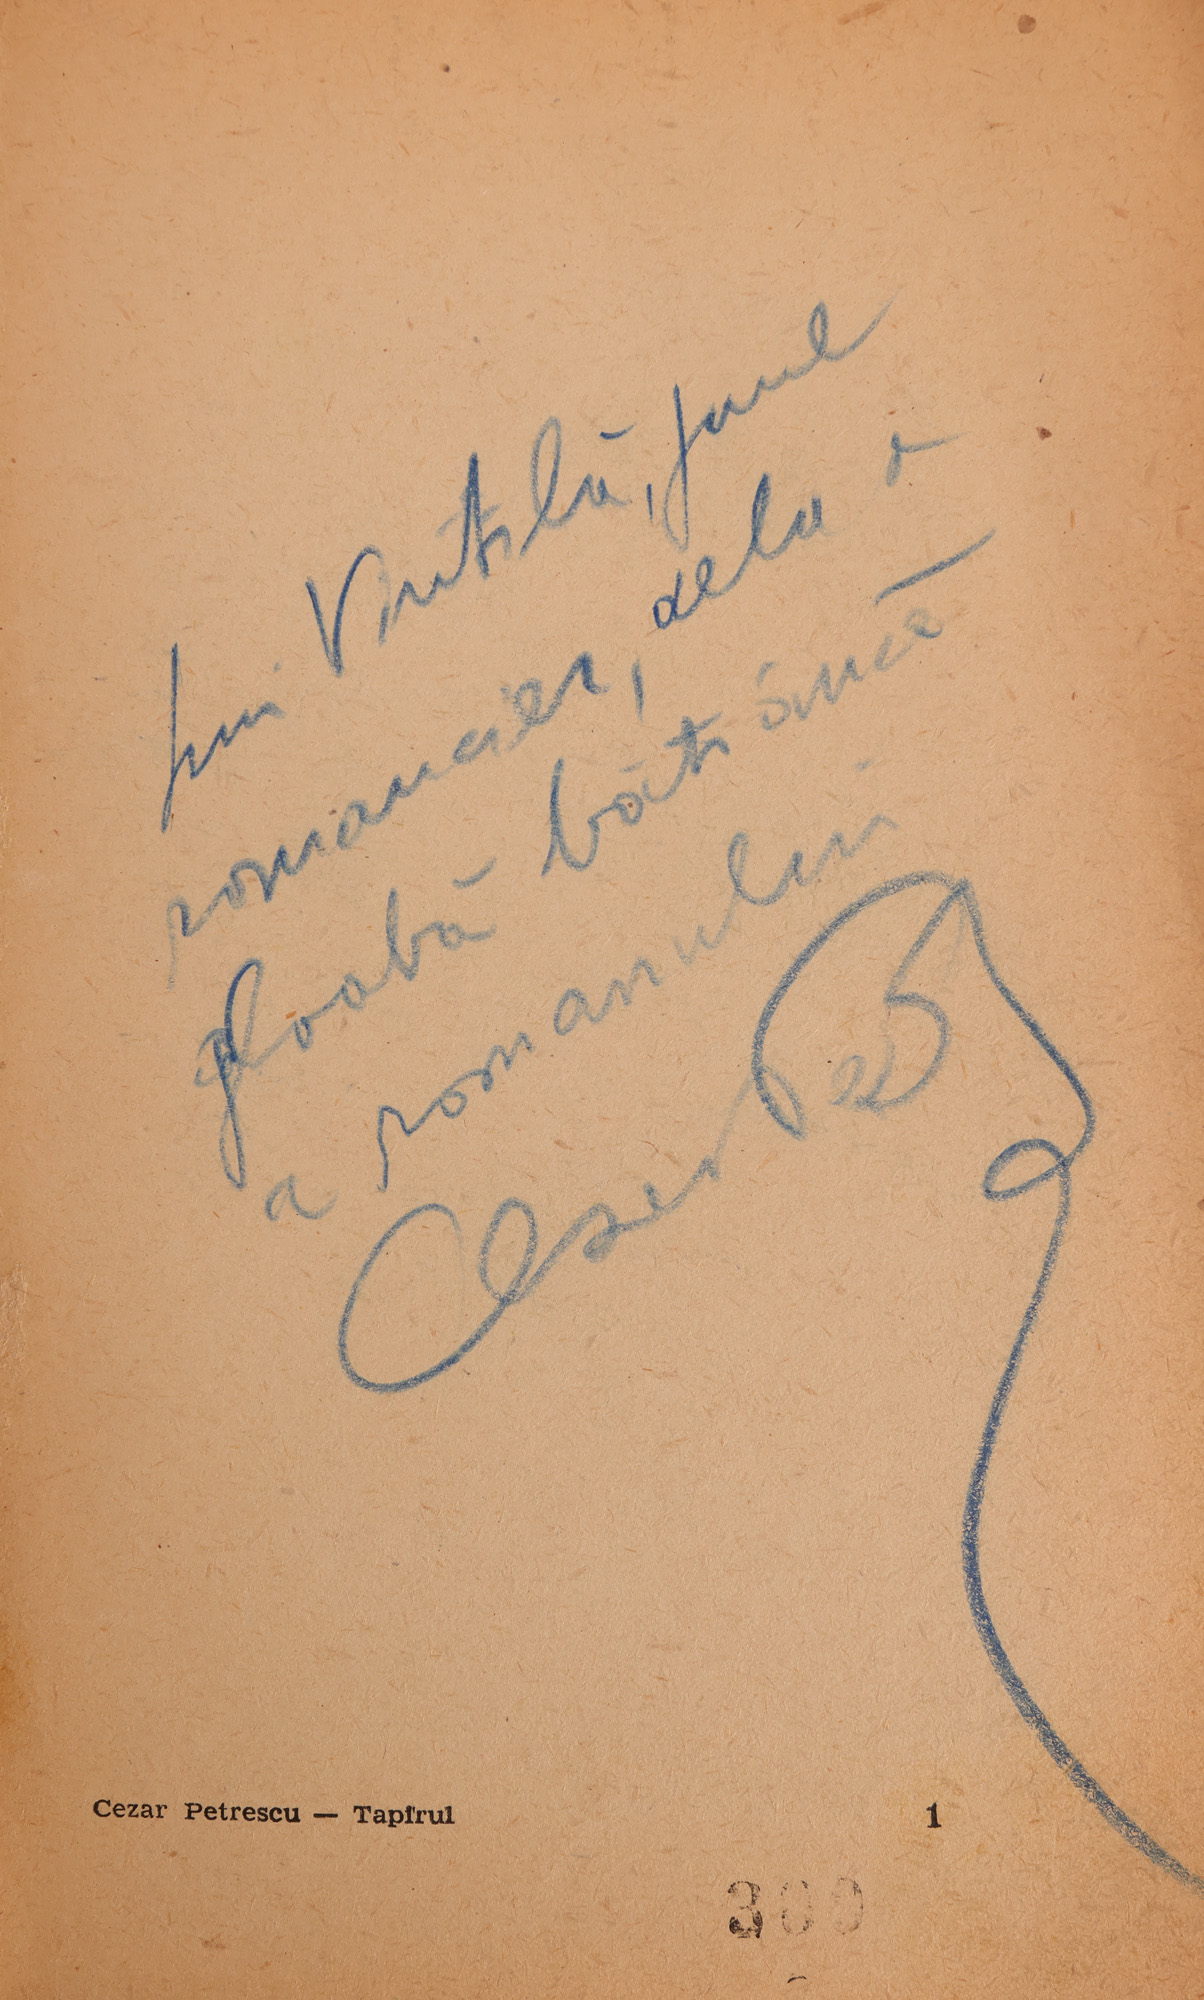 lui Vintilă, junul
romancier, dela o
gloabă bătrână
a romanului
Cezar Petrescu
Cezar Petrescu — Tapirul 1
300